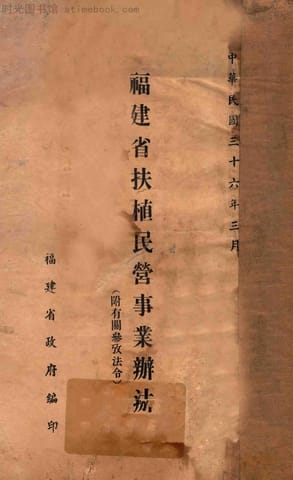 时光图书馆 atimebook.com
中華民國三十六年三月
福建省扶植民營事業辦法
（附有關參攷法令）
福建省政府編印